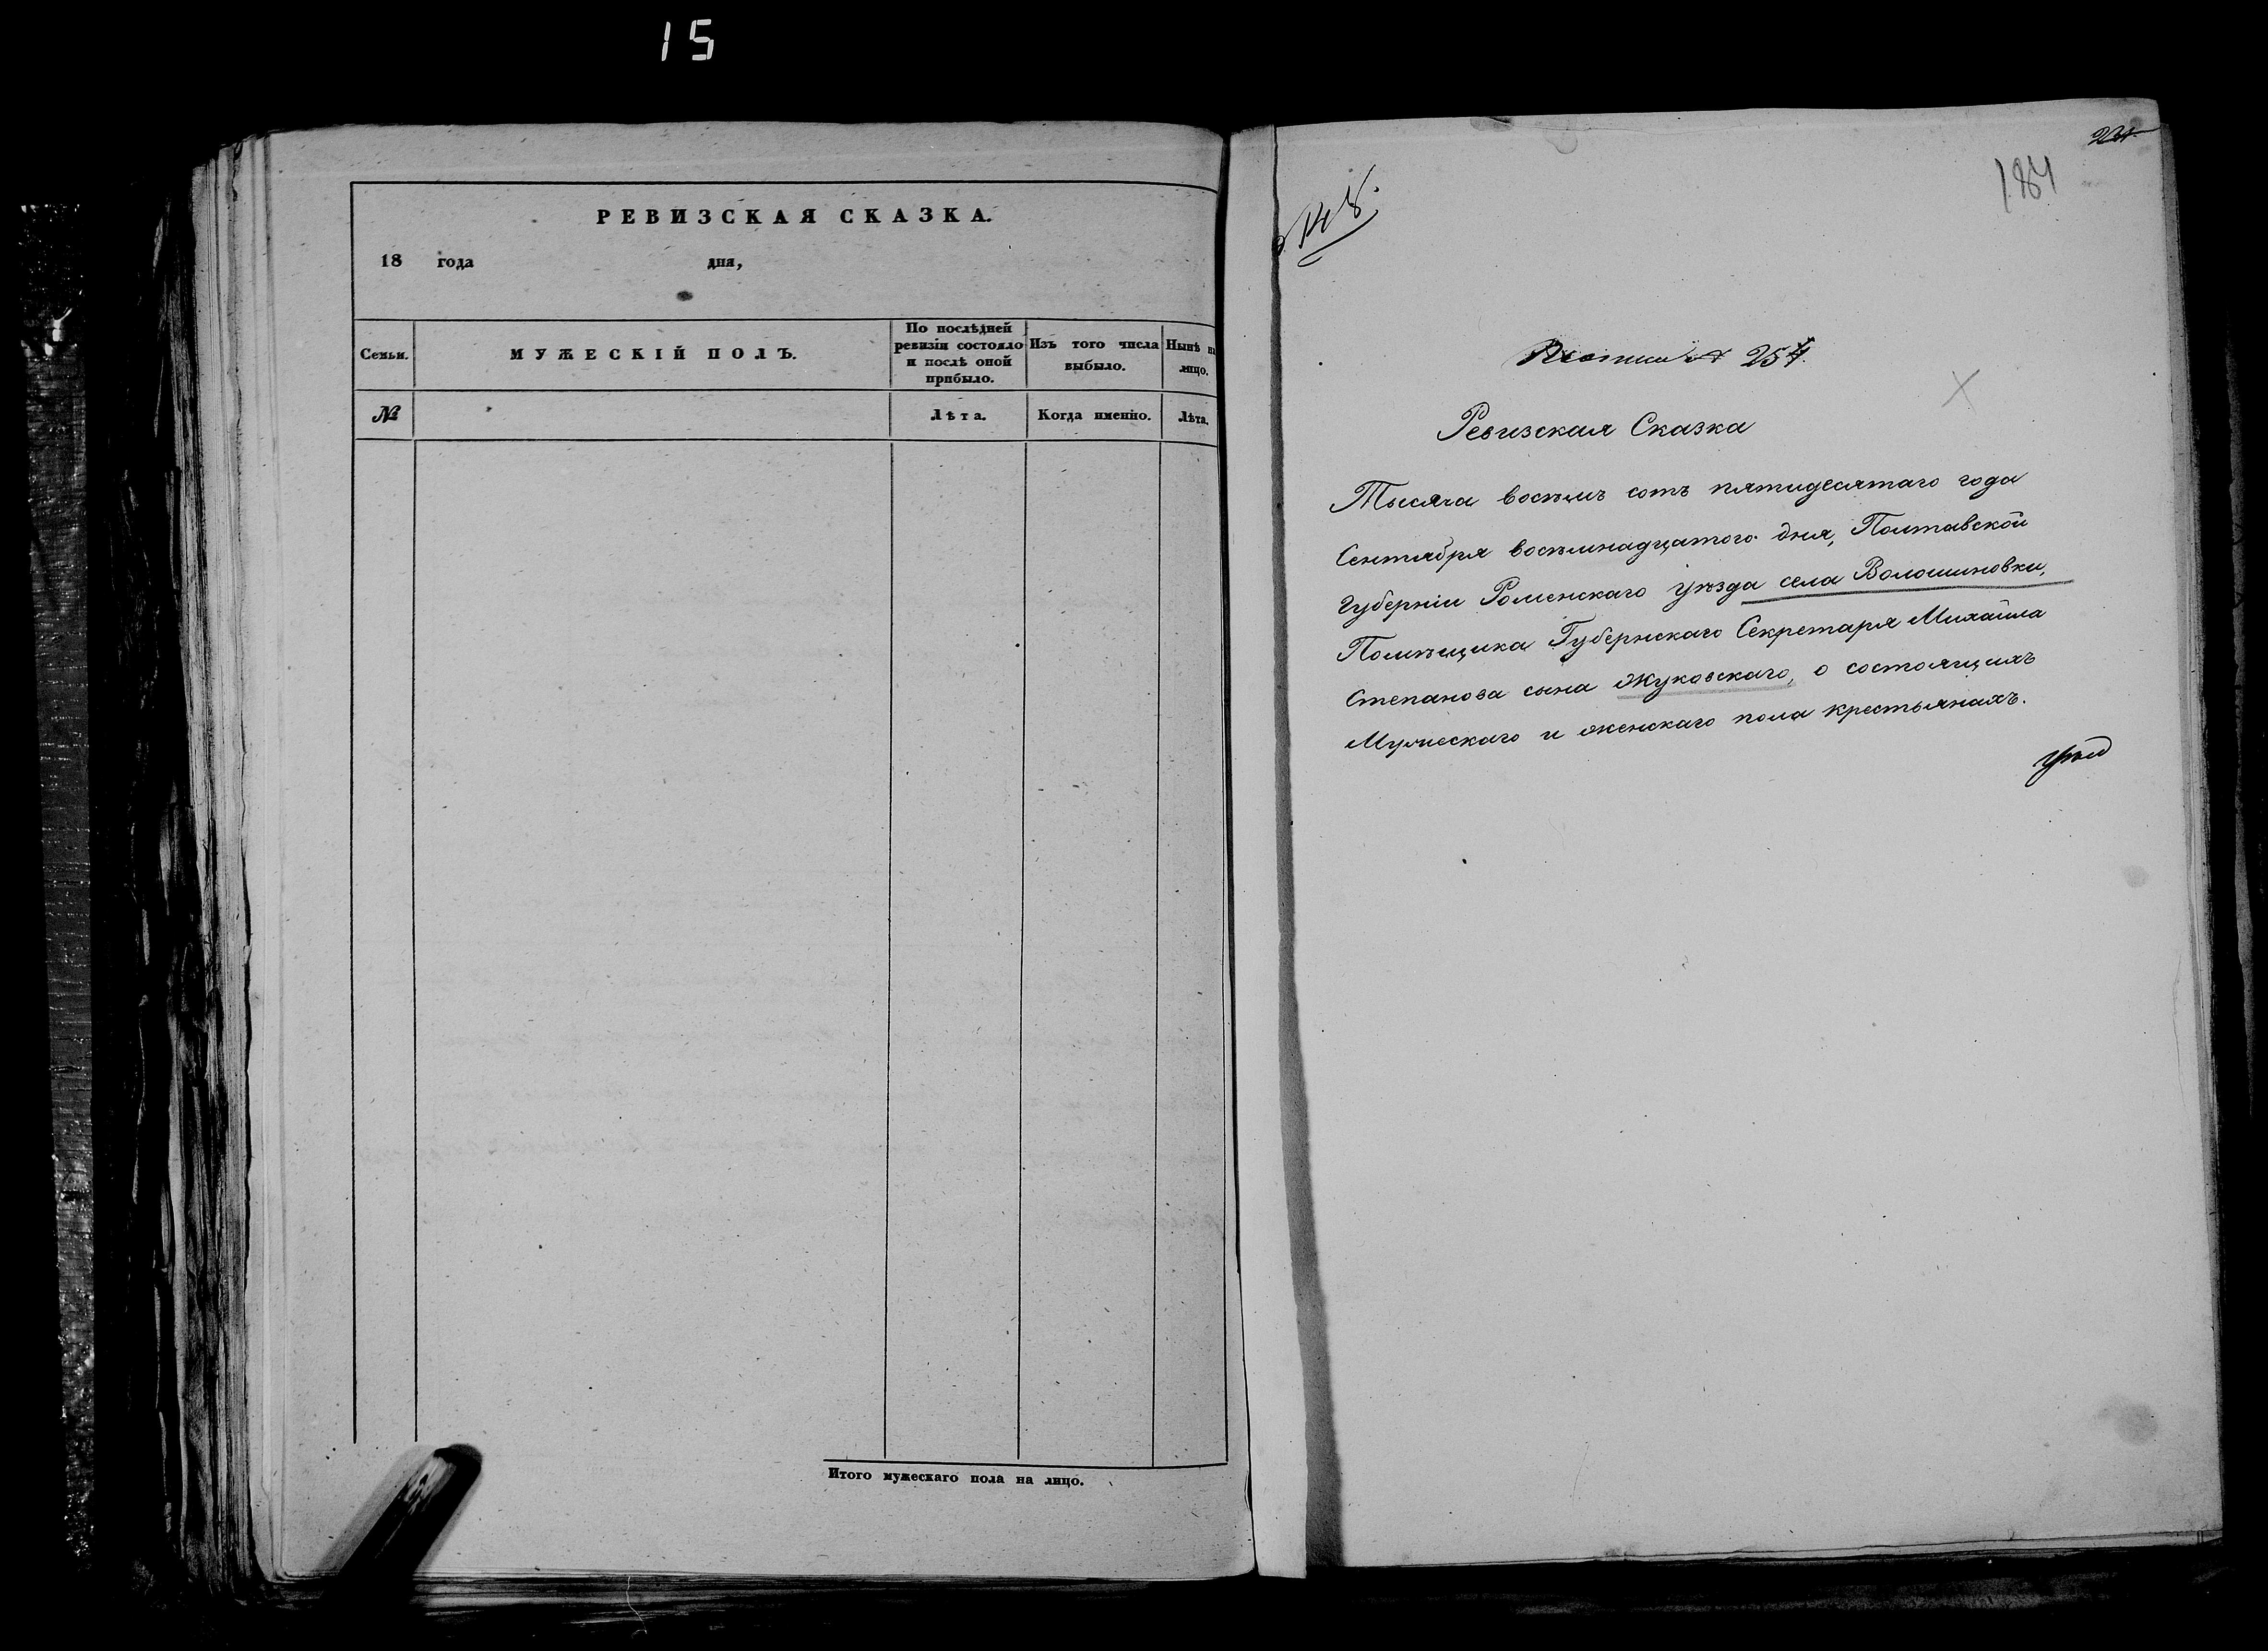 15
РЕВИЗСКАЯ СКАЗКА.
18 года дня,
Семьи.
МУЖЕСКІЙ ПОЛЪ.
По послѣдней
ревизіи состояло
и послѣ оной
прибыло.
Изъ того числа
выбыло.
Нынѣ на
лицо.
№
Лѣта.
Когда именно.
Лѣта.
Итого мужескаго пола на лицо.
184
Ревизская Сказка
Тысяча восемь сотъ пятидесятаго года
Сентября восемнадцатого дня, Полтавской
Губерніи Роменскаго уѣзда села Волошиновки,
Помѣщика Губернскаго Секретаря Михаила
Степанова сына Жуковскаго, о состоящихъ
Мужескаго и женскаго пола крестьянахъ.